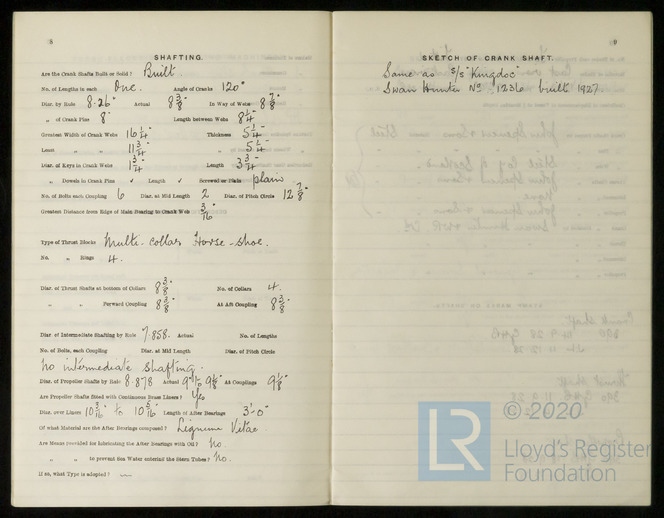 8
SHAFTING.
Are the Crank Shafts Built or Solid? Built
No. of Lengths in each One. Angle of Cranks 120°
Diar. by Rule 8·26" Actual 8 3/8" In Way of Webs 8 7/8"
„ of Crank Pins 8" Length between Webs 8 1/4"
Greatest Width of Crank Webs 16 1/4" Thickness 5 1/4"
Least „ „ 11 3/4" „ 5 1/4"
Diar. of Keys in Crank Webs 1 3/4" Length 3 3/4"
„ Dowels in Crank Pins ✓ Length ✓ Screwed or Plain plain
No. of Bolts each Coupling 6 Diar. at Mid Length 2 Diar. of Pitch Circle 12 7/8"
Greatest Distance from Edge of Main Bearing to Crank Web 3/16"
Type of Thrust Blocks Multi-collar Horse-shoe.
No. „ Rings 4.
Diar. of Thrust Shafts at bottom of Collars 8 3/8" No. of Collars 4.
„ „ Forward Coupling 8 3/8" At Aft Coupling 8 3/8"
Diar. of Intermediate Shafting by Rule 7.858. Actual No. of Lengths
No. of Bolts, each Coupling Diar. at Mid Length Diar. of Pitch Circle
No intermediate shafting.
Diar. of Propeller Shafts by Rule 8.878 Actual 9" to 9 1/8" At Couplings 9 1/8"
Are Propeller Shafts fitted with Continuous Brass Liners? Yes
Diar. over Liners 10 3/16" to 10 5/16" Length of After Bearings 3'-0"
Of what Material are the After Bearings composed? Lignum Vitae
Are Means provided for lubricating the After Bearings with Oil? No.
„ „ to prevent Sea Water entering the Stern Tubes? No.
If so, what Type is adopted? —
9
SKETCH OF CRANK SHAFT.
Same as S/S "Kingdoc"
Swan Hunter No. 1236 built 1927.
© 2020
LR
Lloyd's Register
Foundation